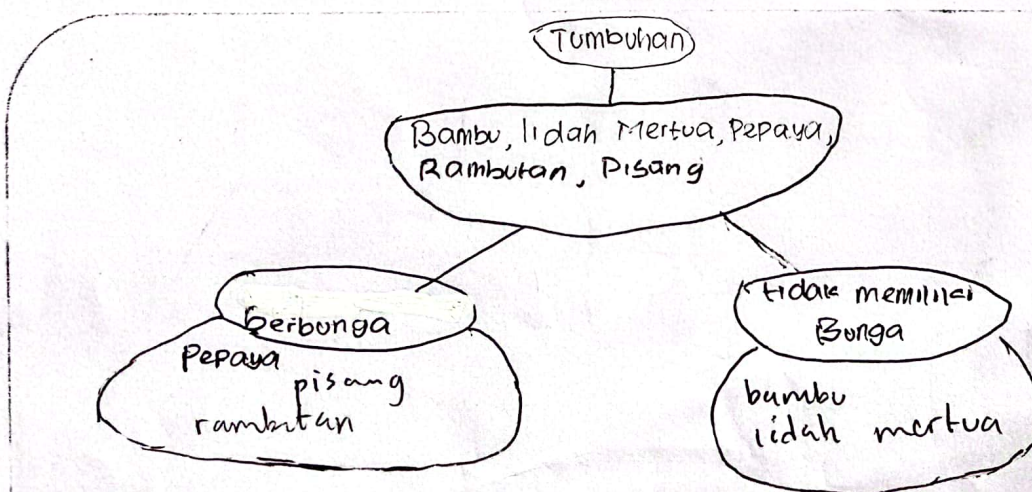 Tumbuhan
Bambu, lidah Mertua, Pepaya,
Rambutan, Pisang
berbunga
Pepaya
pisang
rambutan
tidak memiliki
Bunga
bambu
lidah mertua